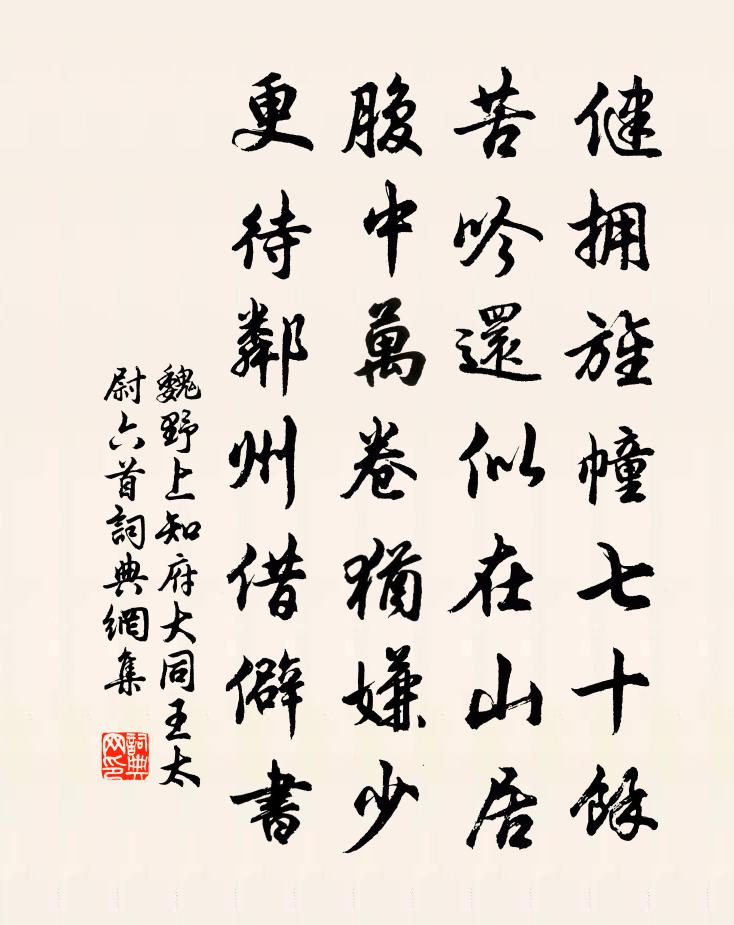 健拥旌幢七十餘
苦吟還似在山居
腹中萬卷猶嫌少
更待鄰州借僻書
魏野上知府大同王太
尉六首詞典網集
詞典網印